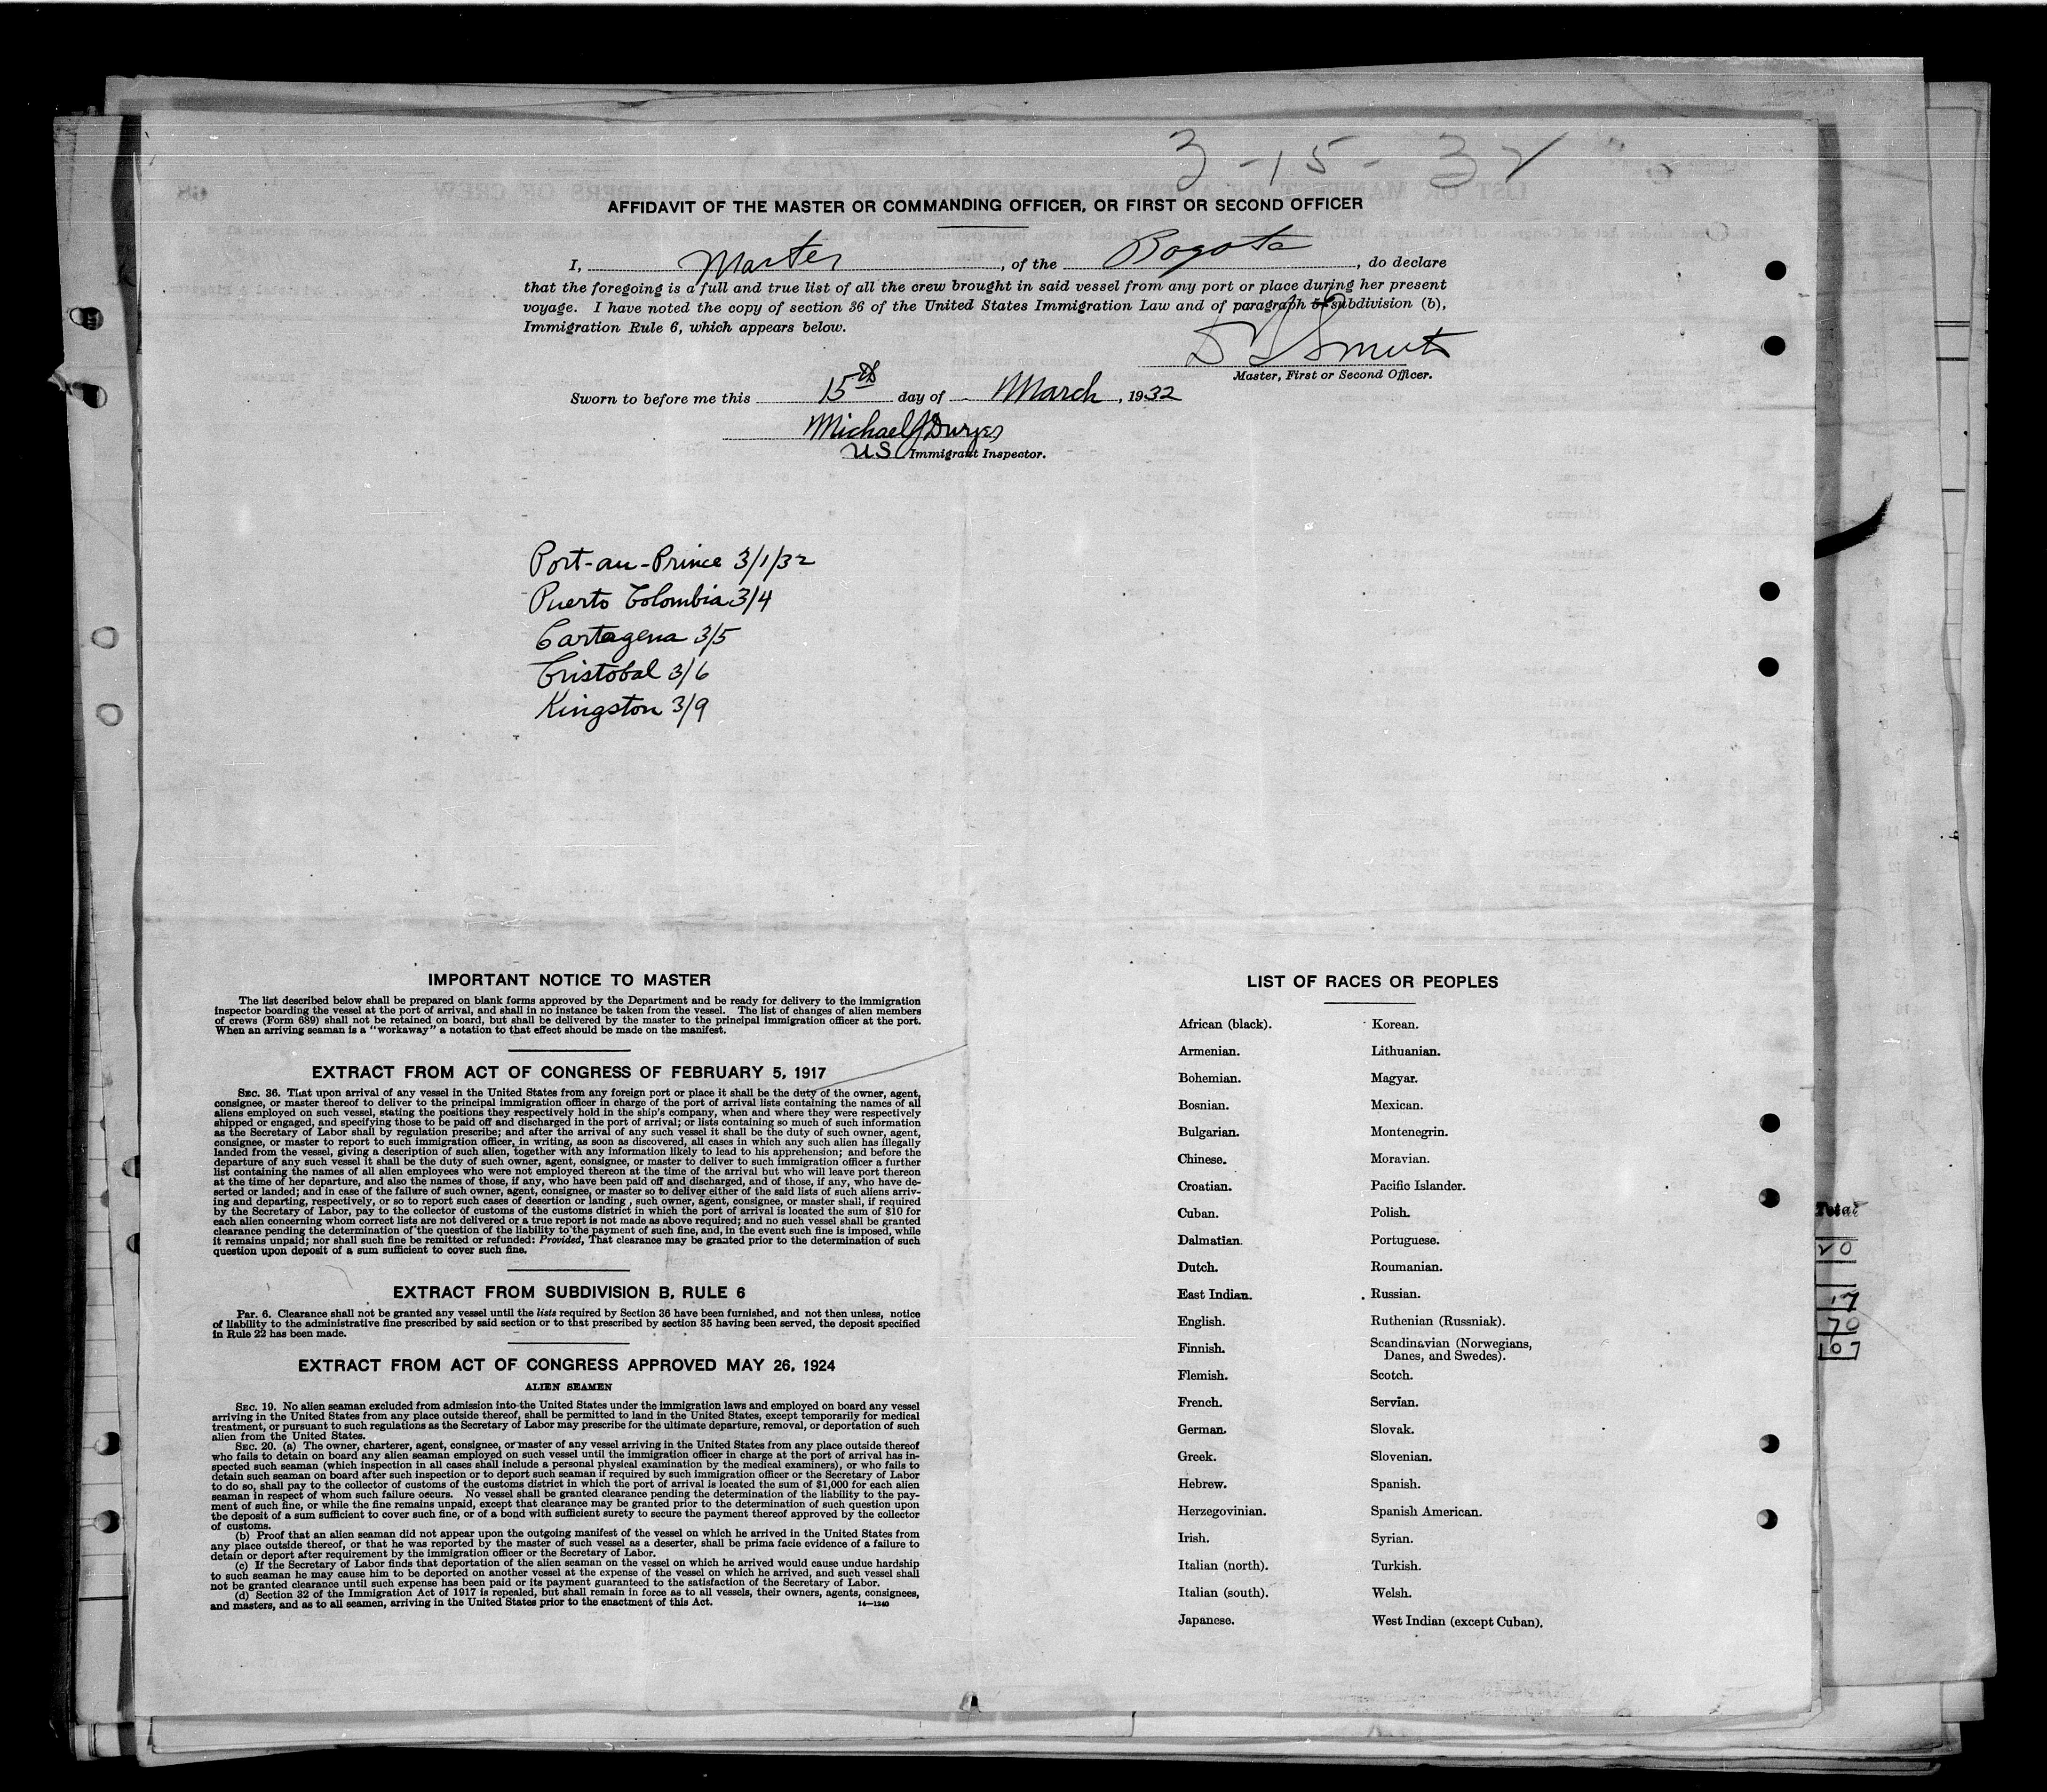 3-15-32
AFFIDAVIT OF THE MASTER OR COMMANDING OFFICER, OR FIRST OR SECOND OFFICER
I, Master, of the Bogota, do declare
that the foregoing is a full and true list of all the crew brought in said vessel from any port or place during her present
voyage. I have noted the copy of section 36 of the United States Immigration Law and of paragraph 6 subdivision (b),
Immigration Rule 6, which appears below.
Master, First or Second Officer.
Sworn to before me this 15th day of March, 1932
Michael J
US Immigrant Inspector.
Port-au-Prince 3/1/32
Puerto Colombia 3/4
Cartagena 3/5
Cristobal 3/6
Kingston 3/9
IMPORTANT NOTICE TO MASTER
The list described below shall be prepared on blank forms approved by the Department and be ready for delivery to the immigration
inspector boarding the vessel at the port of arrival, and shall in no instance be taken from the vessel. The list of changes of alien members
of crews (Form 689) shall not be retained on board, but shall be delivered by the master to the principal immigration officer at the port.
When an arriving seaman is a "workaway" a notation to that effect should be made on the manifest.
EXTRACT FROM ACT OF CONGRESS OF FEBRUARY 5, 1917
SEC. 36. That upon arrival of any vessel in the United States from any foreign port or place it shall be the duty of the owner, agent,
consignee, or master thereof to deliver to the principal immigration officer in charge of the port of arrival lists containing the names of all
aliens employed on such vessel, stating the positions they respectively hold in the ship's company, when and where they were respectively
shipped or engaged, and specifying those to be paid off and discharged in the port of arrival; or lists containing so much of such information
as the Secretary of Labor shall by regulation prescribe; and after the arrival of any such vessel it shall be the duty of such owner, agent,
consignee, or master to report to such immigration officer, in writing, as soon as discovered, all cases in which any such alien has illegally
landed from the vessel, giving a description of such alien, together with any information likely to lead to his apprehension; and before the
departure of any such vessel it shall be the duty of such owner, agent, consignee, or master to deliver to such immigration officer a further
list containing the names of all alien employees who were not employed thereon at the time of the arrival but who will leave port thereon
at the time of her departure, and also the names of those, if any, who have been paid off and discharged, and of those, if any, who have de-
serted or landed; and in case of the failure of such owner, agent, consignee, or master so to deliver either of the said lists of such aliens arriv-
ing and departing, respectively, or so to report such cases of desertion or landing, such owner, agent, consignee, or master shall, if required
by the Secretary of Labor, pay to the collector of customs of the customs district in which the port of arrival is located the sum of $10 for
each alien concerning whom correct lists are not delivered or a true report is not made as above required; and no such vessel shall be granted
clearance pending the determination of the question of the liability to the payment of such fine, and, in the event such fine is imposed, while
it remains unpaid; nor shall such fine be remitted or refunded: Provided, That clearance may be granted prior to the determination of such
question upon deposit of a sum sufficient to cover such fine.
EXTRACT FROM SUBDIVISION B, RULE 6
Par. 6. Clearance shall not be granted any vessel until the lists required by Section 36 have been furnished, and not then unless, notice
of liability to the administrative fine prescribed by said section or to that prescribed by section 35 having been served, the deposit specified
in Rule 22 has been made.
EXTRACT FROM ACT OF CONGRESS APPROVED MAY 26, 1924
ALIEN SEAMEN
SEC. 19. No alien seaman excluded from admission into the United States under the immigration laws and employed on board any vessel
arriving in the United States from any place outside thereof, shall be permitted to land in the United States, except temporarily for medical
treatment, or pursuant to such regulations as the Secretary of Labor may prescribe for the ultimate departure, removal, or deportation of such
alien from the United States.
SEC. 20. (a) The owner, charterer, agent, consignee, or master of any vessel arriving in the United States from any place outside thereof
who fails to detain on board any alien seaman employed on such vessel until the immigration officer in charge at the port of arrival has in-
spected such seaman (which inspection in all cases shall include a personal physical examination by the medical examiners), or who fails to
detain such seaman on board after such inspection or to deport such seaman if required by such immigration officer or the Secretary of Labor
to do so, shall pay to the collector of customs of the customs district in which the port of arrival is located the sum of $1,000 for each alien
seaman in respect of whom such failure occurs. No vessel shall be granted clearance pending the determination of the liability to the pay-
ment of such fine, or while the fine remains unpaid, except that clearance may be granted prior to the determination of such question upon
the deposit of a sum sufficient to cover such fine, or of a bond with sufficient surety to secure the payment thereof approved by the collector
of customs.
(b) Proof that an alien seaman did not appear upon the outgoing manifest of the vessel on which he arrived in the United States from
any place outside thereof, or that he was reported by the master of such vessel as a deserter, shall be prima facie evidence of a failure to
detain or deport after requirement by the immigration officer or the Secretary of Labor.
(c) If the Secretary of Labor finds that deportation of the alien seaman on the vessel on which he arrived would cause undue hardship
to such seaman he may cause him to be deported on another vessel at the expense of the vessel on which he arrived, and such vessel shall
not be granted clearance until such expense has been paid or its payment guaranteed to the satisfaction of the Secretary of Labor.
(d) Section 32 of the Immigration Act of 1917 is repealed, but shall remain in force as to all vessels, their owners, agents, consignees,
and masters, and as to all seamen, arriving in the United States prior to the enactment of this Act. 14—1240
LIST OF RACES OR PEOPLES
African (black).
Armenian.
Bohemian.
Bosnian.
Bulgarian.
Chinese.
Croatian.
Cuban.
Dalmatian.
Dutch.
East Indian.
English.
Finnish.
Flemish.
French.
German.
Greek.
Hebrew.
Herzegovinian.
Irish.
Italian (north).
Italian (south).
Japanese.
Korean.
Lithuanian.
Magyar.
Mexican.
Montenegrin.
Moravian.
Pacific Islander.
Polish.
Portuguese.
Roumanian.
Russian.
Ruthenian (Russniak).
Scandinavian (Norwegians,
Danes, and Swedes).
Scotch.
Servian.
Slovak.
Slovenian.
Spanish.
Spanish American.
Syrian.
Turkish.
Welsh.
West Indian (except Cuban).
Total
20
17
70
107